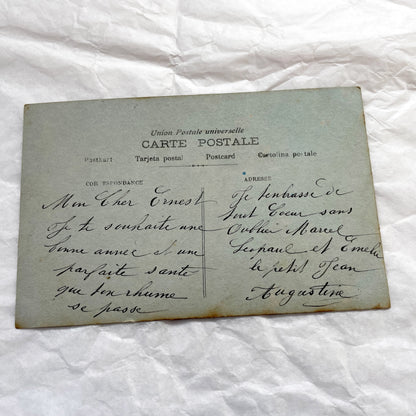 Union Postale universelle
CARTE POSTALE
Postkart Tarjeta postal Postcard Cartolina postale
CORRESPONDANCE
Mon Cher Ernest
Je te souhaite une
bonne année et une
parfaite santé
que ton rhume
se passe
ADRESSE
Je t'embrasse de
tout Coeur sans
Oublier Marcel
Léopaul et Emelie
le petit Jean
Augustine